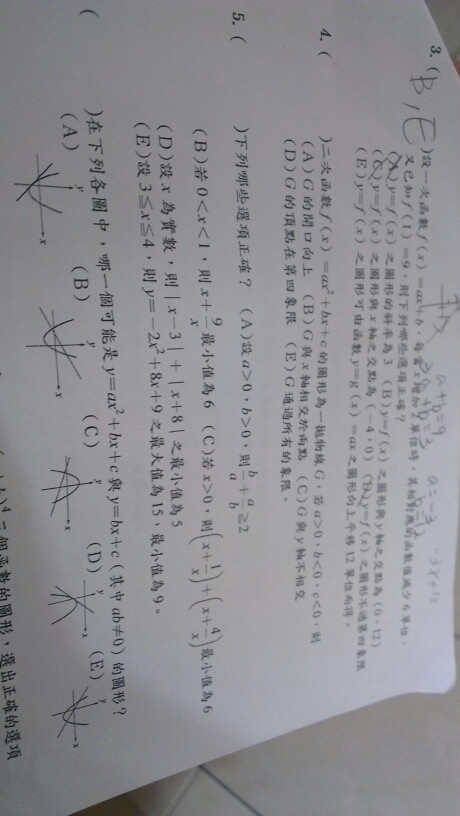 3. (B,E)設一次函數f(x)=ax+b,每當x增加2單位時,其相對應的函數值減少6單位,
又已知f(1)=9,則下列哪些選項正確?
(A)y=f(x)之圖形的斜率為3 (B)y=f(x)之圖形與y軸之交點為(0,12)
(C)y=f(x)之圖形與x軸之交點為(-4,0) (D)y=f(x)之圖形不過第四象限
(E)y=f(x)之圖形可由函數y=g(x)=ax之圖形向上平移12單位而得。
a+b=9
a=-3
-3x+12
4. ( )二次函數f(x)=ax²+bx+c的圖形為一拋物線G,若a>0,b<0,c<0,則
(A)G的開口向上 (B)G與x軸相交於兩點 (C)G與y軸不相交
(D)G的頂點在第四象限 (E)G通過所有的象限。
5. ( )下列哪些選項正確? (A)設a>0,b>0,則b/a+a/b≥2
(B)若0<x<1,則x+9/x最小值為6 (C)若x>0,則(x+1/x)+(x+4/x)最小值為6
(D)設x為實數,則|x-3|+|x+8|之最小值為5
(E)設3≦x≦4,則y=-2x²+8x+9之最大值為15,最小值為9。
( )在下列各圖中,哪一個可能是y=ax²+bx+c與y=bx+c(其中ab≠0)的圖形?
(A) y x (B) y x (C) y x (D) y x (E) y x
三個函數的圖形,選出正確的選項